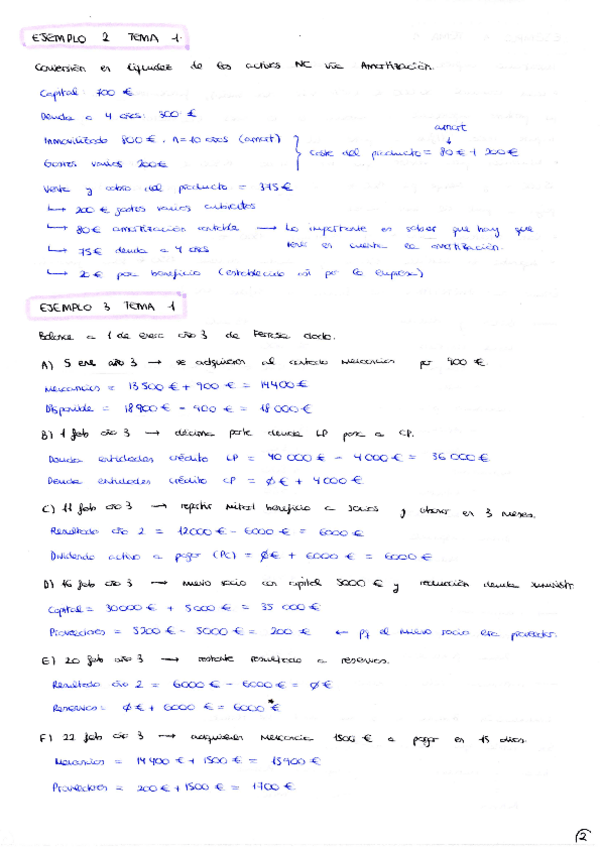 EJEMPLO 2 TEMA 1.
Conversión en liquidez de los activos NC vía Amortización.
Capital: 700 €
Deuda a 4 años: 300 €
Inmovilizado 800 €, n=10 años (amort)
Gastos varios 200€
amort
Coste del producto = 80 € + 200 €
Venta y cobro del producto = 375 €
↳ 200 € gastos varios cubiertos
↳ 80€ amortización contable → Lo importante es saber que hay que
tener en cuenta la amortización.
↳ 75€ deuda a 4 años
↳ 20 € para beneficio (establecido así por la empresa)
EJEMPLO 3 TEMA 1
Balance a 1 de enero año 3 de dado.
A) 5 ene año 3 → se adquieren al contado mercancías por 900 €
Mercancías = 13 500 € + 900 € = 14 400 €
Disponible = 18 900 € - 900 € = 18 000 €
B) 1 feb año 3 → décima parte deuda LP pasa a CP.
Deuda entidades crédito LP = 40 000 € - 4 000 € = 36 000 €
Deuda entidades crédito CP = Ø € + 4000 €
C) 11 feb año 3 → repartir mitad beneficio a socios y abonar en 3 meses.
Resultado año 2 = 12000 € - 6000 € = 6000 €
Dividendo activo a pagar (PC) = Ø € + 6000 € = 6000 €
D) 16 feb año 3 → nuevo socio con capital 5000 € y reducción deuda
Capital = 30000 € + 5000 € = 35 000 €
Proveedores = 5200 € - 5000 € = 200 € ← pq el nuevo socio era proveedor.
E) 20 feb año 3 → restante resultado a reservas.
Resultado año 2 = 6000 € - 6000 € = Ø €
Reservas = Ø € + 6000 € = 6000 € *
F) 22 feb año 3 → adquieren mercancía 1500 € a pagar en 15 días
Mercancías = 14 400 € + 1500 € = 15 900 €
Proveedores = 200 € + 1500 € = 1700 €
2